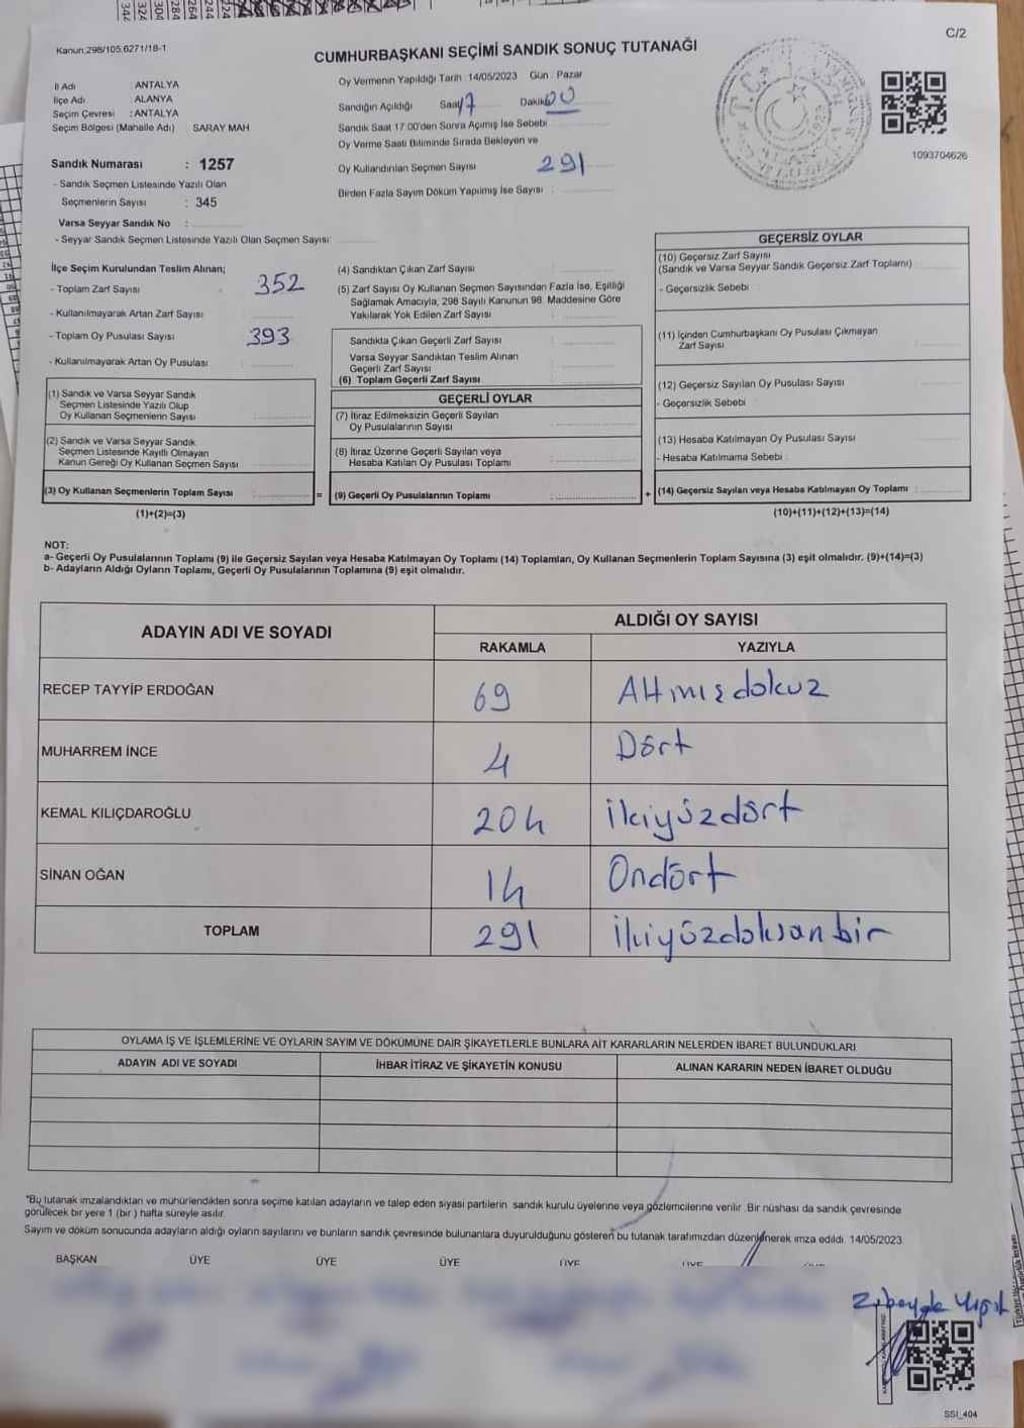 C/2
Kanun:298/105,6271/18-1
CUMHURBAŞKANI SEÇİMİ SANDIK SONUÇ TUTANAĞI
İl Adı : ANTALYA
İlçe Adı : ALANYA
Seçim Çevresi : ANTALYA
Seçim Bölgesi (Mahalle Adı) SARAY MAH
Sandık Numarası : 1257
- Sandık Seçmen Listesinde Yazılı Olan
Seçmenlerin Sayısı : 345
Varsa Seyyar Sandık No :
- Seyyar Sandık Seçmen Listesinde Yazılı Olan Seçmen Sayısı:
Oy Vermenin Yapıldığı Tarih 14/05/2023 Gün : Pazar
Sandığın Açıldığı Saat 17 Dakika 00
Sandık Saat 17.00'den Sonra Açılmış İse Sebebi
Oy Verme Saati Bitiminde Sırada Bekleyen ve
Oy Kullandırılan Seçmen Sayısı 291
Birden Fazla Sayım Döküm Yapılmış İse Sayısı :
1093704626
İlçe Seçim Kurulundan Teslim Alınan;
- Toplam Zarf Sayısı 352
- Kullanılmayarak Artan Zarf Sayısı
- Toplam Oy Pusulası Sayısı 393
- Kullanılmayarak Artan Oy Pusulası
(1) Sandık ve Varsa Seyyar Sandık
Seçmen Listesinde Yazılı Olup
Oy Kullanan Seçmenlerin Sayısı
(2) Sandık ve Varsa Seyyar Sandık
Seçmen Listesinde Kayıtlı Olmayan
Kanun Gereği Oy Kullanan Seçmen Sayısı
(3) Oy Kullanan Seçmenlerin Toplam Sayısı =
(1)+(2)=(3)
(4) Sandıktan Çıkan Zarf Sayısı
(5) Zarf Sayısı Oy Kullanan Seçmen Sayısından Fazla İse, Eşitliği
Sağlamak Amacıyla, 298 Sayılı Kanunun 98. Maddesine Göre
Yakılarak Yok Edilen Zarf Sayısı
Sandıkta Çıkan Geçerli Zarf Sayısı
Varsa Seyyar Sandıktan Teslim Alınan
Geçerli Zarf Sayısı
(6) Toplam Geçerli Zarf Sayısı
GEÇERLİ OYLAR
(7) İtiraz Edilmeksizin Geçerli Sayılan
Oy Pusulalarının Sayısı
(8) İtiraz Üzerine Geçerli Sayılan veya
Hesaba Katılan Oy Pusulası Toplamı
(9) Geçerli Oy Pusulalarının Toplamı +
GEÇERSİZ OYLAR
(10) Geçersiz Zarf Sayısı
(Sandık ve Varsa Seyyar Sandık Geçersiz Zarf Toplamı)
- Geçersizlik Sebebi :
(11) İçinden Cumhurbaşkanı Oy Pusulası Çıkmayan
Zarf Sayısı
(12) Geçersiz Sayılan Oy Pusulası Sayısı
- Geçersizlik Sebebi
(13) Hesaba Katılmayan Oy Pusulası Sayısı
- Hesaba Katılmama Sebebi :
(14) Geçersiz Sayılan veya Hesaba Katılmayan Oy Toplamı :
(10)+(11)+(12)+(13)=(14)
NOT:
a- Geçerli Oy Pusulalarının Toplamı (9) ile Geçersiz Sayılan veya Hesaba Katılmayan Oy Toplamı (14) Toplamları, Oy Kullanan Seçmenlerin Toplam Sayısına (3) eşit olmalıdır. (9)+(14)=(3)
b- Adayların Aldığı Oyların Toplamı, Geçerli Oy Pusulalarının Toplamına (9) eşit olmalıdır.
ADAYIN ADI VE SOYADI ALDIĞI OY SAYISI
RAKAMLA YAZIYLA
RECEP TAYYİP ERDOĞAN 69 Altmışdokuz
MUHARREM İNCE 4 Dört
KEMAL KILIÇDAROĞLU 204 İkiyüzdört
SİNAN OĞAN 14 Ondört
TOPLAM 291 İkiyüzdoksanbir
OYLAMA İŞ VE İŞLEMLERİNE VE OYLARIN SAYIM VE DÖKÜMÜNE DAİR ŞİKAYETLERLE BUNLARA AİT KARARLARIN NELERDEN İBARET BULUNDUKLARI
ADAYIN ADI VE SOYADI İHBAR İTİRAZ VE ŞİKAYETİN KONUSU ALINAN KARARIN NEDEN İBARET OLDUĞU
*Bu tutanak imzalandıktan ve mühürlendikten sonra seçime katılan adayların ve talep eden siyasi partilerin sandık kurulu üyelerine veya gözlemcilerine verilir. Bir nüshası da sandık çevresinde
görülecek bir yere 1 (bir) hafta süreyle asılır.
Sayım ve döküm sonucunda adayların aldığı oyların sayılarını ve bunların sandık çevresinde bulunanlara duyurulduğunu gösteren bu tutanak tarafımızdan düzenlenerek imza edildi. 14/05/2023
BAŞKAN ÜYE ÜYE ÜYE ÜYE ÜYE
SSI_404